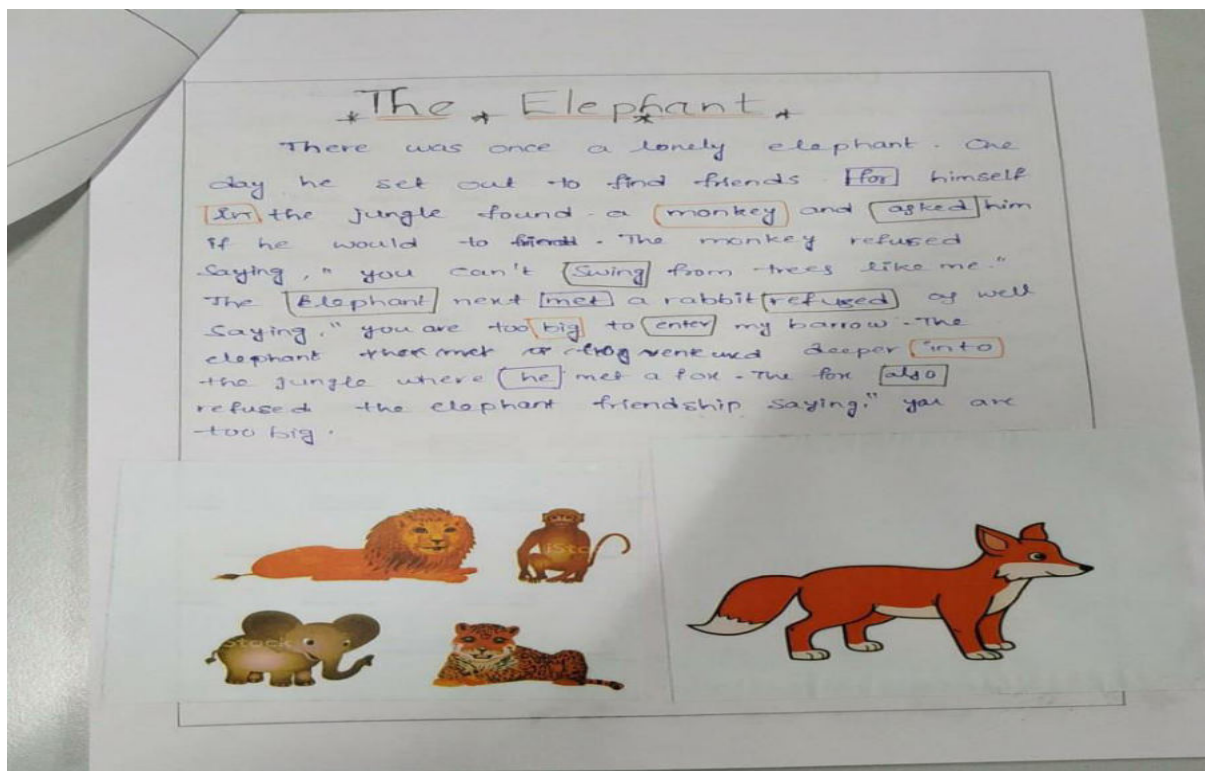 The Elephant
There was once a lonely elephant. One
day he set out to find friends for himself
In the jungle found a monkey and asked him
if he would to friend. The monkey refused
Saying, "you can't Swing from trees like me."
The Elephant next met a rabbit refused as well
Saying, "you are too big to enter my barrow. The
elephant then met a frog ventured deeper into
the jungle where he met a fox. The fox also
refused the elephant friendship saying, "you are
too big.
iStoc
iStock